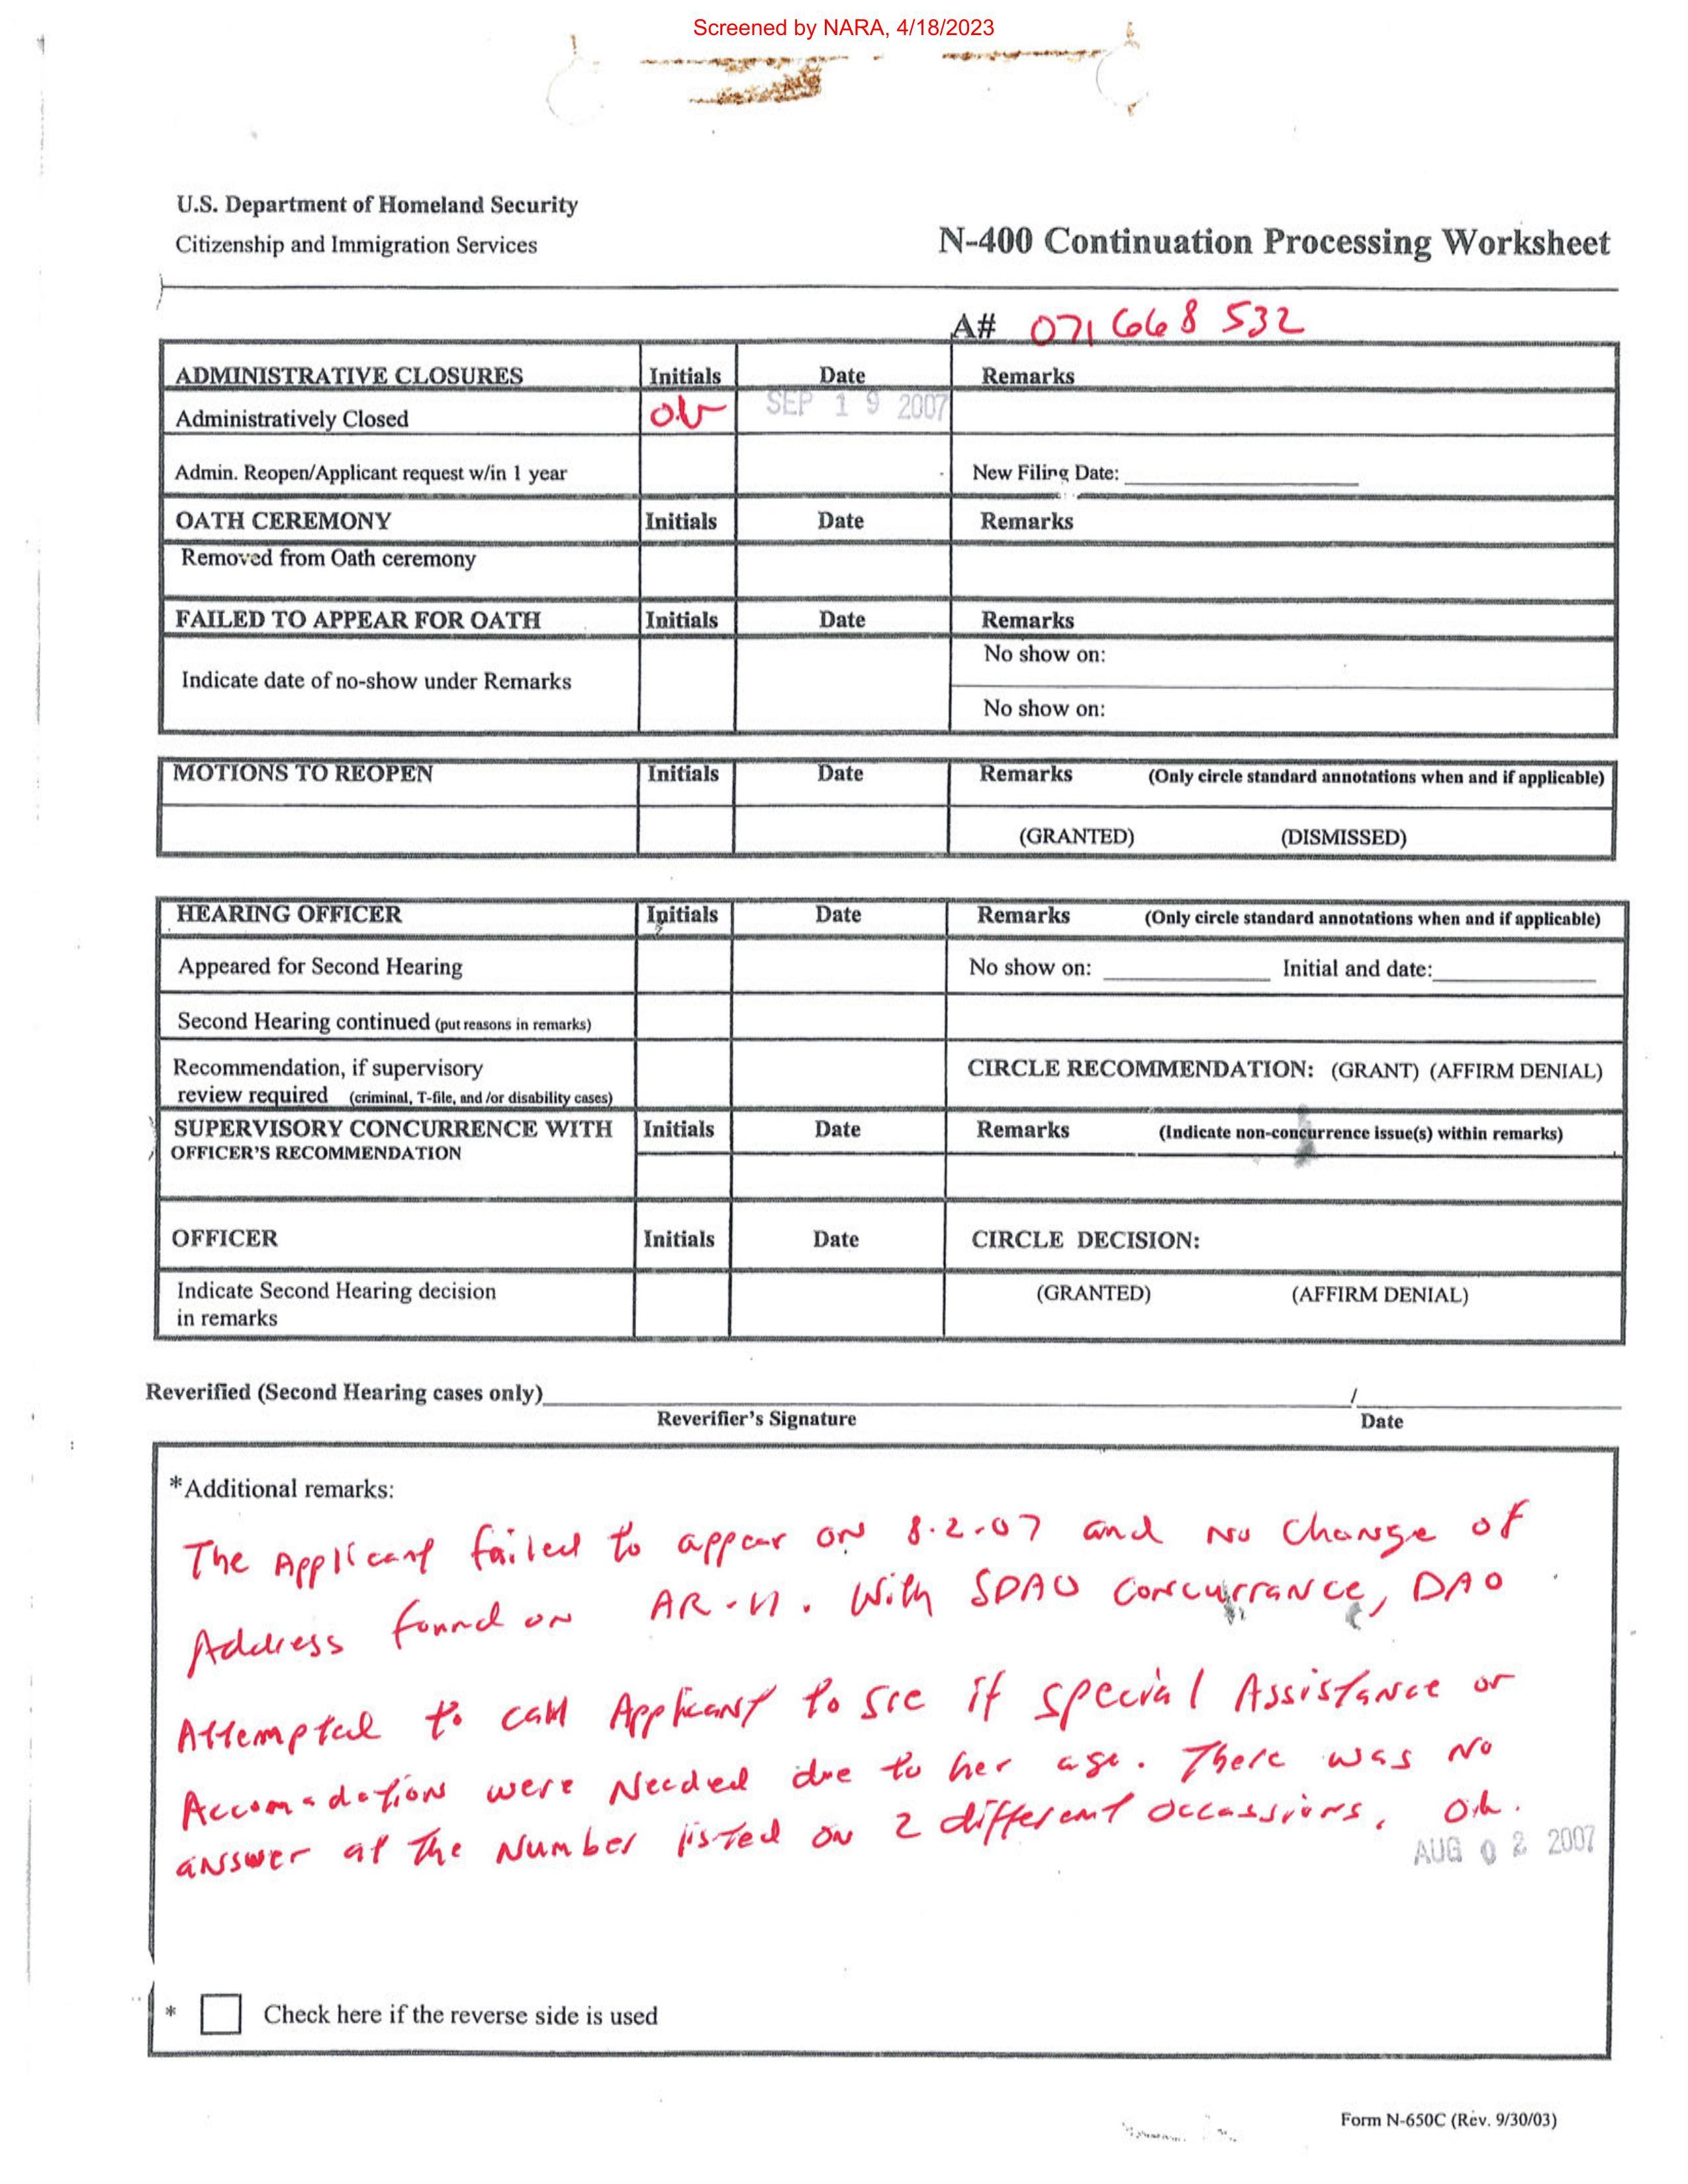 Screened by NARA, 4/18/2023
U.S. Department of Homeland Security
Citizenship and Immigration Services
N-400 Continuation Processing Worksheet
A# 071 668 532
ADMINISTRATIVE CLOSURES Initials Date Remarks
Administratively Closed SEP 19 2007
Admin. Reopen/Applicant request w/in 1 year New Filing Date:
OATH CEREMONY Initials Date Remarks
Removed from Oath ceremony
FAILED TO APPEAR FOR OATH Initials Date Remarks
Indicate date of no-show under Remarks
No show on:
No show on:
MOTIONS TO REOPEN Initials Date Remarks (Only circle standard annotations when and if applicable)
(GRANTED) (DISMISSED)
HEARING OFFICER Initials Date Remarks (Only circle standard annotations when and if applicable)
Appeared for Second Hearing No show on: Initial and date:
Second Hearing continued (put reasons in remarks)
Recommendation, if supervisory
review required (criminal, T-file, and /or disability cases)
CIRCLE RECOMMENDATION: (GRANT) (AFFIRM DENIAL)
SUPERVISORY CONCURRENCE WITH Initials Date Remarks (Indicate non-concurrence issue(s) within remarks)
OFFICER'S RECOMMENDATION
OFFICER Initials Date CIRCLE DECISION:
Indicate Second Hearing decision
in remarks
(GRANTED) (AFFIRM DENIAL)
Reverified (Second Hearing cases only) /
Reverifier's Signature Date
*Additional remarks:
The Applicant failed to appear on 8.2.07 and no change of
Address found on AR-11. With SDAO concurrance, DAO
Attempted to call Applicant to see if special Assistance or
Accomadations were needed due to her age. There was no
answer at the number listed on 2 different occassions.
AUG 02 2007
* Check here if the reverse side is used
Form N-650C (Rev. 9/30/03)